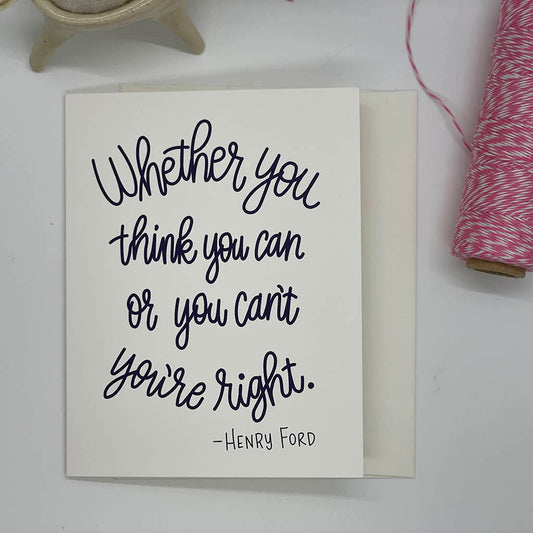 Whether you
think you can
or you can't
you're right.
-HENRY FORD